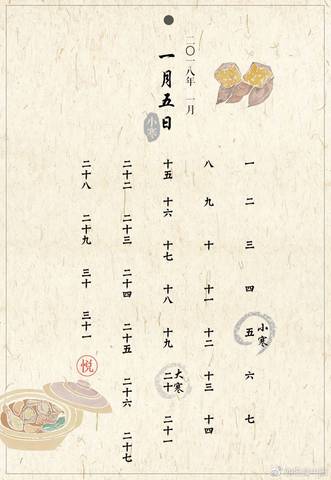 二〇一八年 一月
一月五日
小寒
一 二 三 四 五 六 七
小寒
八 九 十 十一 十二 十三 十四
十五 十六 十七 十八 十九 二十 二十一
大寒
二十二 二十三 二十四 二十五 二十六 二十七
二十八 二十九 三十 三十一
悦